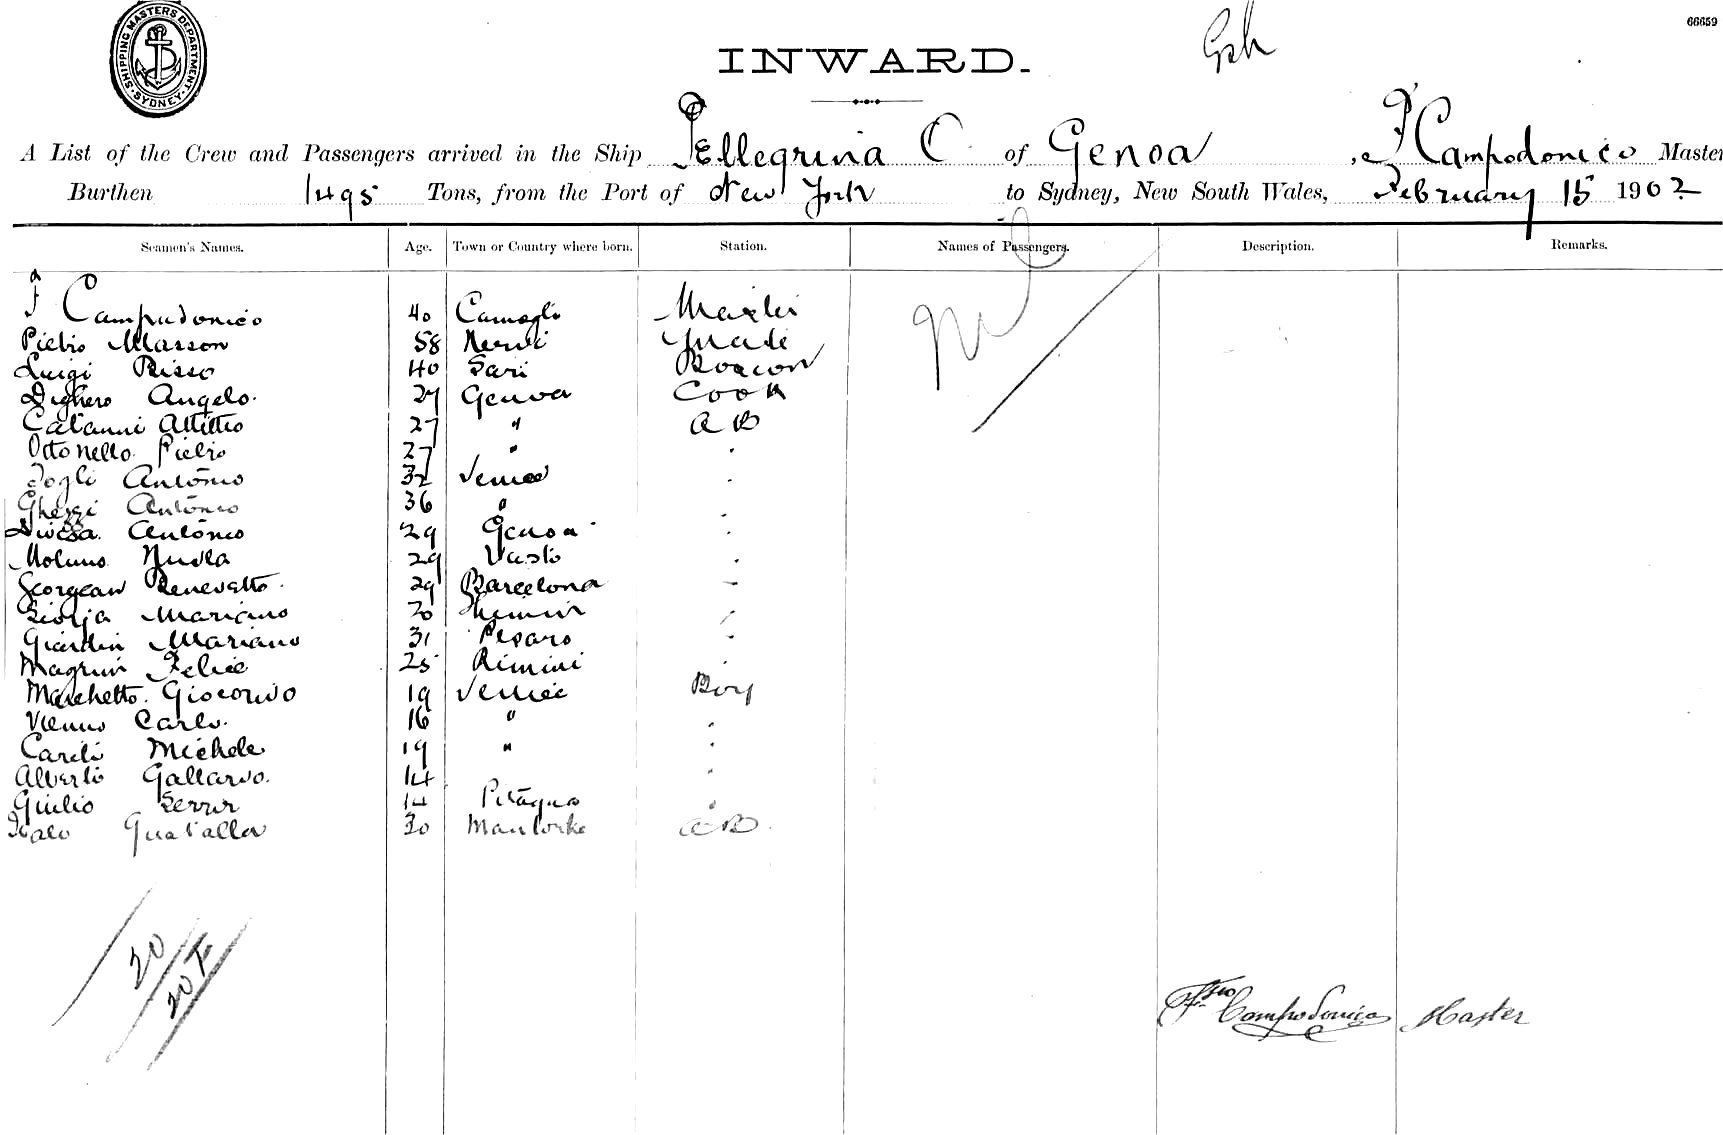 66659
SHIPPING MASTERS DEPARTMENT SYDNEY
INWARD.
A List of the Crew and Passengers arrived in the Ship Pellegrina C of Genoa, Campodonico Master
Burthen 1495 Tons, from the Port of New York to Sydney, New South Wales, February 15 1902
Seamen's Names. Age. Town or Country where born. Station. Names of Passengers. Description. Remarks.
F Campodonico 40 Camogli Master
Pietro Masson 58 Nervi Mate
Luigi Risso 40 Sari
Dighero Angelo. 27 Genova Cook
Catanni Attitio 27 " A B
Ottonello Pietro 27 "
Fogli Antonio 32 Venice
Ghezzi Antonio 36 "
Antonio 29 Genoa
29 Vasto
Georgean Benevetto. 29 Barcelona
Mariano 30
Giardin Mariano 31 Pesaro
Magrini Felice 25 Rimini
Marchetto. 19 Venice Boy
Carlo. 16 "
Michele 19 "
Alberto Gallardo. 14
Giulio 14
Italo 30 AB.
20
20
Campodonico Master